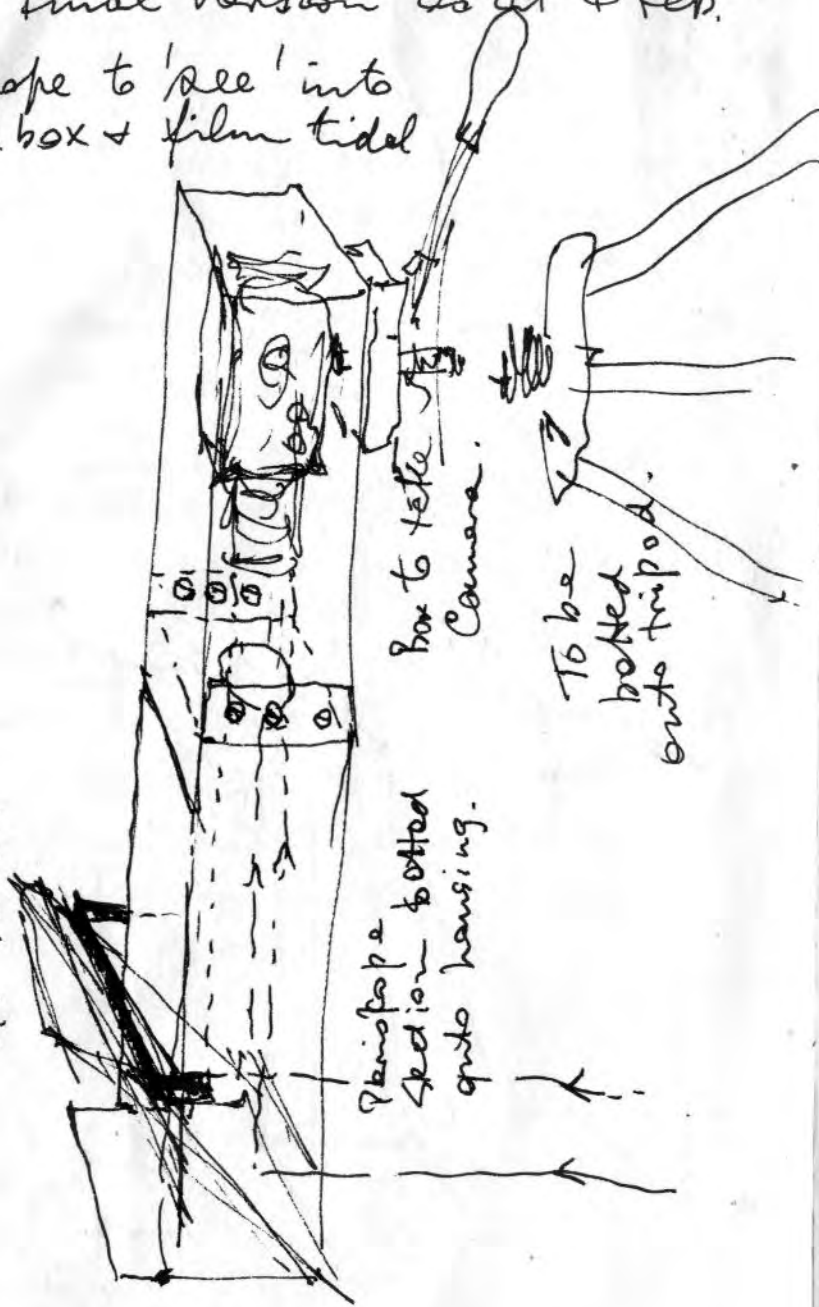 final version as at 4 Feb.
ope to 'see' into
box & film tidal
Box to take
Camera.
To be
bolted
onto tripod.
Periscope
section bolted
onto housing.